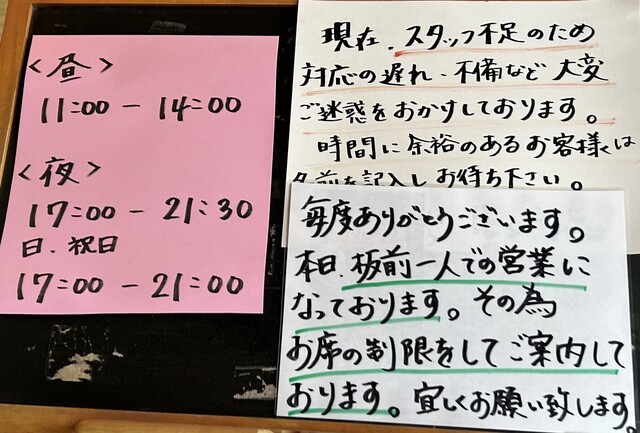 <昼>
11:00 - 14:00
<夜>
17:00 - 21:30
日、祝日
17:00 - 21:00
現在、スタッフ不足のため
対応の遅れ、不備など大変
ご迷惑をおかけしております。
時間に余裕のあるお客様は
名前を記入しお待ち下さい。
毎度ありがとうございます。
本日、板前一人での営業に
なっております。その為
お席の制限をしてご案内して
おります。宜しくお願い致します。